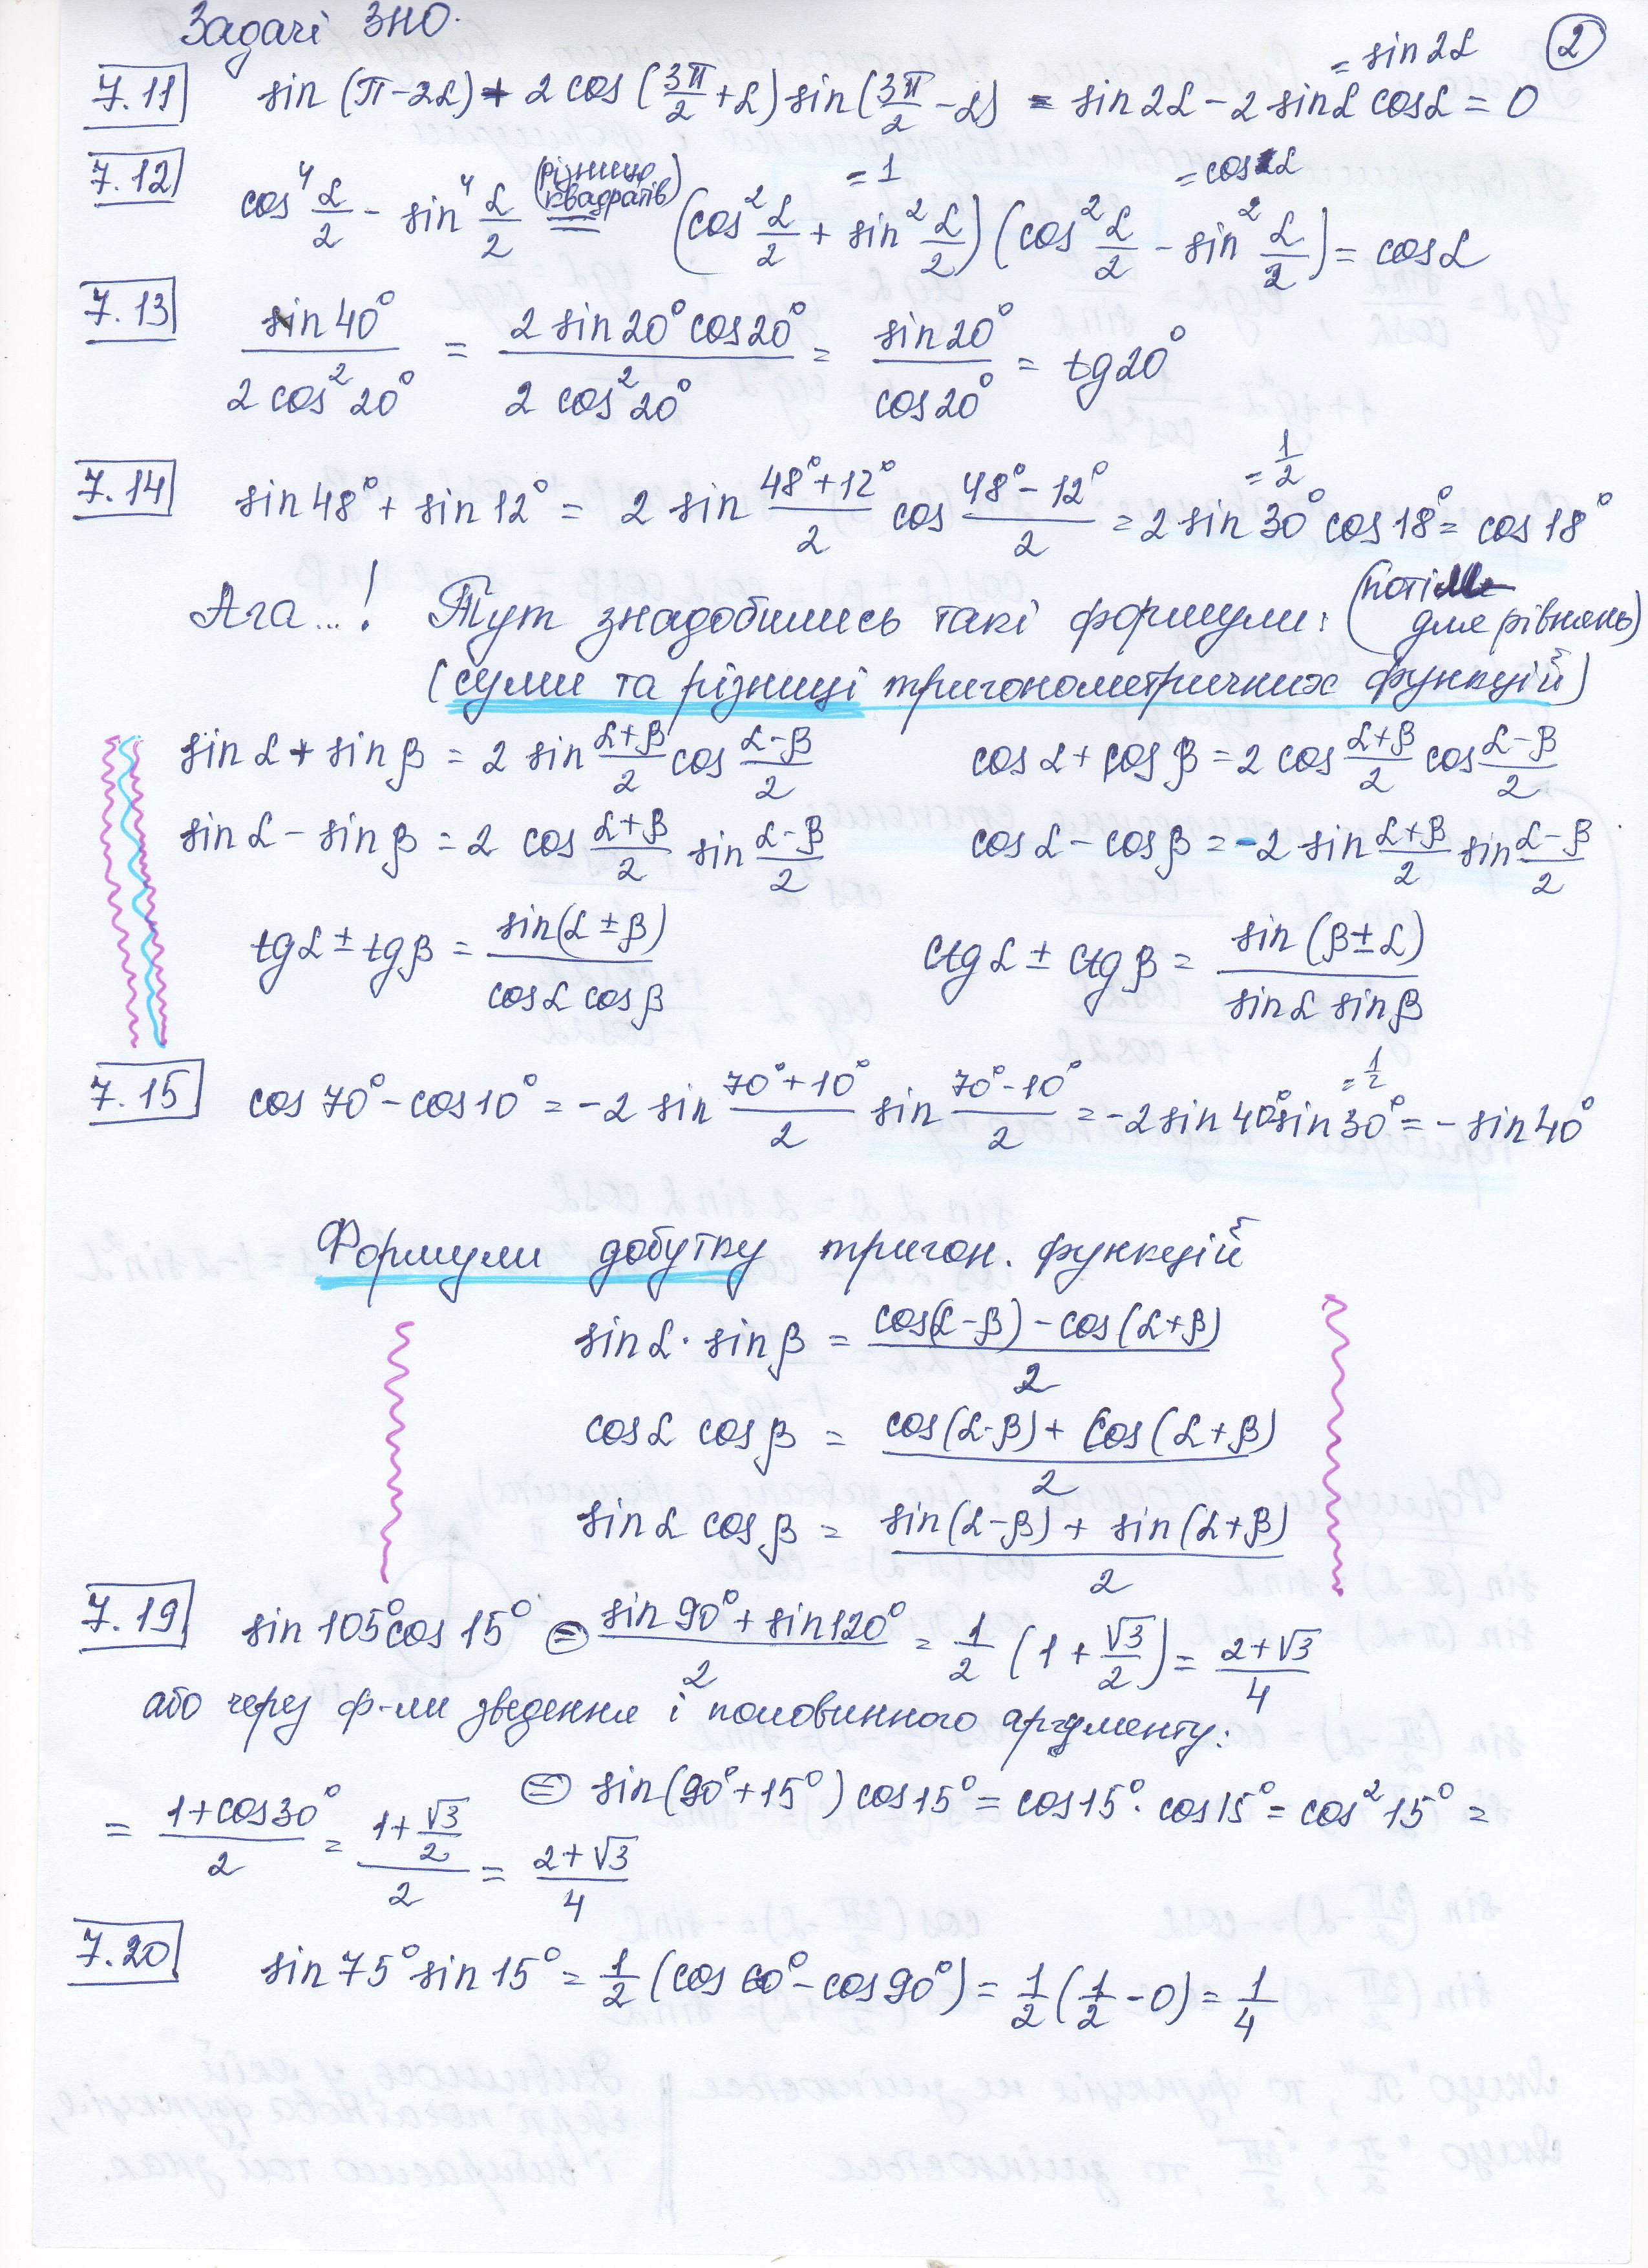 Задачі ЗНО. ②
7.11 sin(π-2α)+2cos(3π/2+α)sin(3π/2-α) = sin2α-2sinα cosα = 0
= sin2α
7.12 cos⁴ α/2 - sin⁴ α/2 = (різниця квадратів) (cos² α/2 + sin² α/2)(cos² α/2 - sin² α/2) = cosα
=1 =cosα
7.13 sin40°/(2cos²20°) = 2sin20°cos20°/(2cos²20°) = sin20°/cos20° = tg20°
7.14 sin48°+sin12° = 2 sin (48°+12°)/2 cos (48°-12°)/2 = 2 sin30° cos18° = cos18°
= 1/2
Ага...! Тут знадобились такі формули: (потім для рівнянь)
(суми та різниці тригонометричних функцій)
sinα + sinβ = 2 sin (α+β)/2 cos (α-β)/2 cosα + cosβ = 2 cos (α+β)/2 cos (α-β)/2
sinα - sinβ = 2 cos (α+β)/2 sin (α-β)/2 cosα - cosβ = -2 sin (α+β)/2 sin (α-β)/2
tgα ± tgβ = sin(α±β)/(cosα cosβ) ctgα ± ctgβ = sin(β±α)/(sinα sinβ)
7.15 cos70°-cos10° = -2 sin (70°+10°)/2 sin (70°-10°)/2 = -2sin40°sin30° = -sin40°
= 1/2
Формули добутку тригон. функцій
sinα · sinβ = (cos(α-β) - cos(α+β))/2
cosα cosβ = (cos(α-β) + cos(α+β))/2
sinα cosβ = (sin(α-β) + sin(α+β))/2
7.19 sin105°cos15° = (sin90°+sin120°)/2 = 1/2 (1+√3/2) = (2+√3)/4
або через ф-ли зведення і половинного аргументу:
= sin(90°+15°)cos15° = cos15°·cos15° = cos²15° =
= (1+cos30°)/2 = (1+√3/2)/2 = (2+√3)/4
7.20 sin75°sin15° = 1/2 (cos60°-cos90°) = 1/2 (1/2 - 0) = 1/4